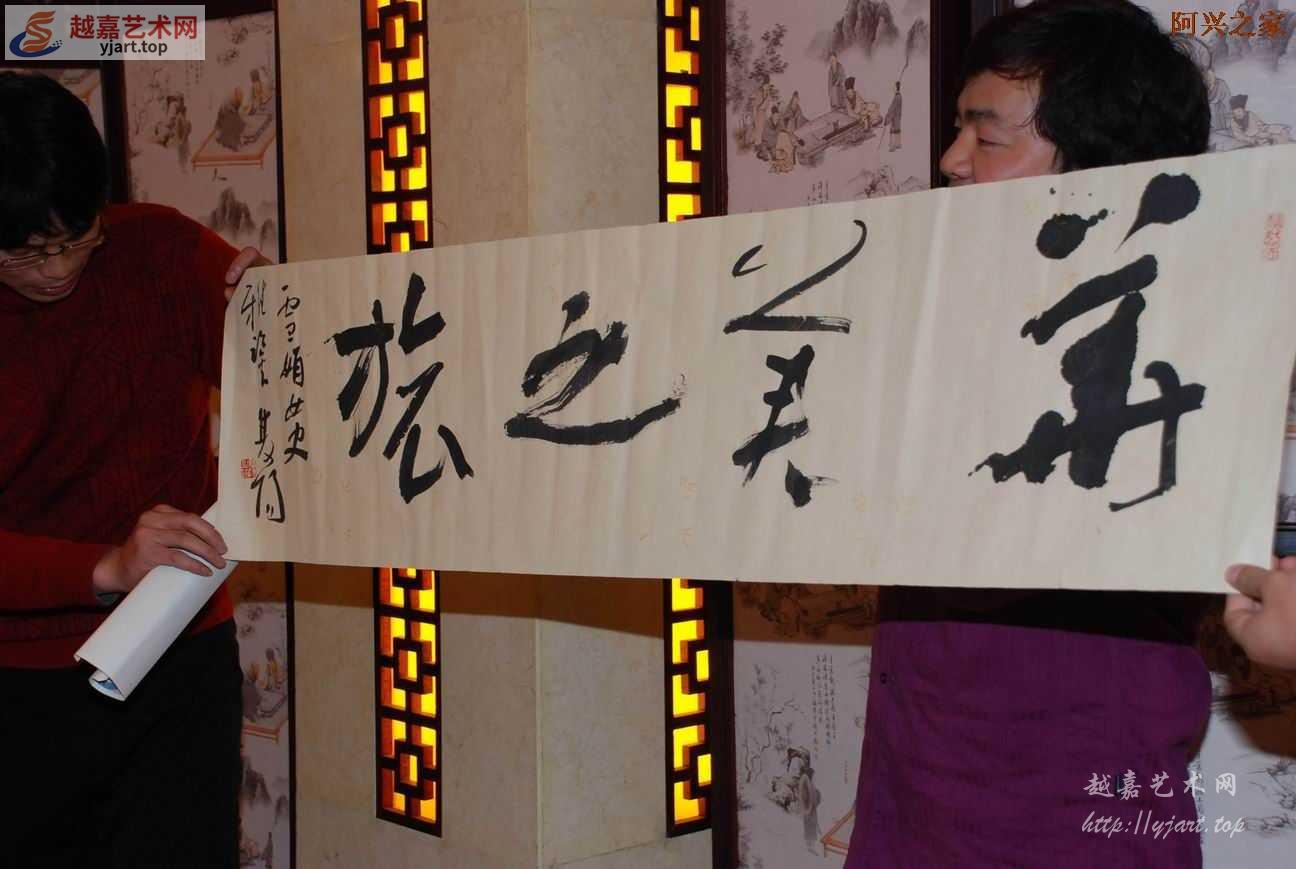 越嘉艺术网
yjart.top
阿兴之家
華美之旅
雪娟女史
越嘉艺术网
http://yjart.top